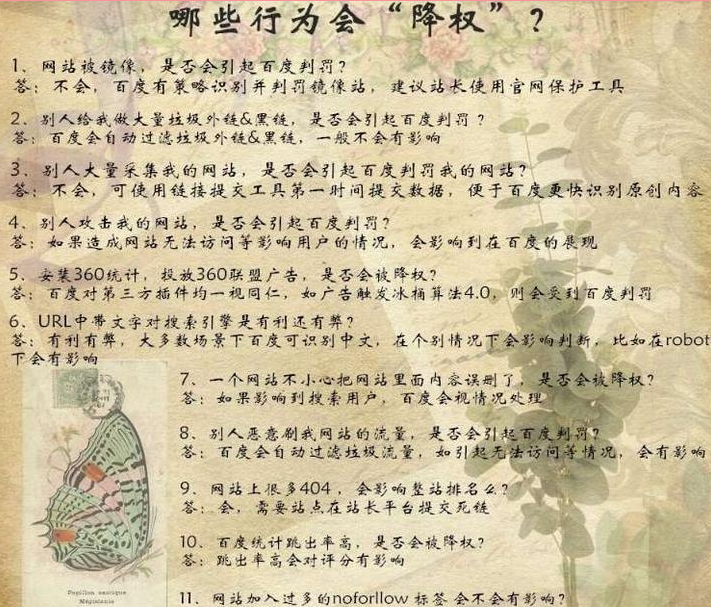 哪些行为会“降权”？
1、网站被镜像，是否会引起百度判罚？
答：不会，百度有策略识别并判罚镜像站，建议站长使用官网保护工具
2、别人给我做大量垃圾外链&黑链，是否会引起百度判罚？
答：百度会自动过滤垃圾外链&黑链，一般不会有影响
3、别人大量采集我的网站，是否会引起百度判罚我的网站？
答：不会，可使用链接提交工具第一时间提交数据，便于百度更快识别原创内容
4、别人攻击我的网站，是否会引起百度判罚？
答：如果造成网站无法访问等影响用户的情况，会影响到在百度的展现
5、安装360统计，投放360联盟广告，是否会被降权？
答：百度对第三方插件均一视同仁，如广告触发冰桶算法4.0，则会受到百度判罚
6、URL中带文字对搜索引擎是有利还有弊？
答：有利有弊，大多数场景下百度可识别中文，在个别情况下会影响判断，比如在robot
下会有影响
7、一个网站不小心把网站里面内容误删了，是否会被降权？
答：如果影响到搜索用户，百度会视情况处理
8、别人恶意刷我网站的流量，是否会引起百度判罚？
答：百度会自动过滤垃圾流量，如引起无法访问等情况，会有影响
9、网站上很多404，会影响整站排名么？
答：会，需要站点在站长平台提交死链
10、百度统计跳出率高，是否会被降权？
答：跳出率高会对评分有影响
11、网站加入过多的noforllow 标签会不会有影响？
Papillon exotique